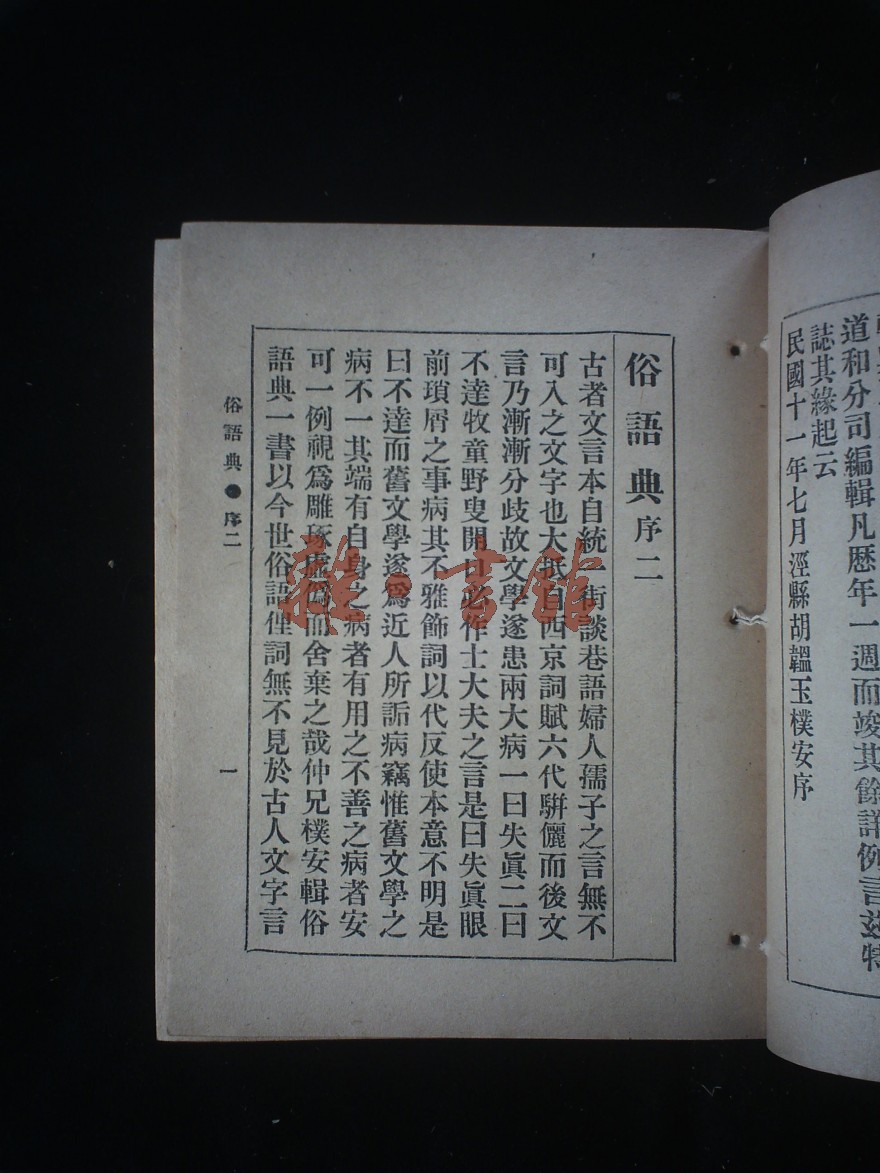 道和分司編輯凡歷年一週而竣其餘詳例言茲特
誌其緣起云
民國十一年七月涇縣胡韞玉樸安序
俗語典序二
古者文言本自統一街談巷語婦人孺子之言無不
可入之文字也大抵自西京詞賦六代騈儷而後文
言乃漸漸分歧故文學遂患兩大病一曰失眞二曰
不達牧童野叟開口必作士大夫之言是曰失眞眼
前瑣屑之事病其不雅飾詞以代反使本意不明是
曰不達而舊文學遂爲近人所詬病竊惟舊文學之
病不一其端有自身之病者有用之不善之病者安
可一例視爲雕琢虛僞而舍棄之哉仲兄樸安輯俗
語典一書以今世俗語俚詞無不見於古人文字言
俗語典●序二
一
雜·書館